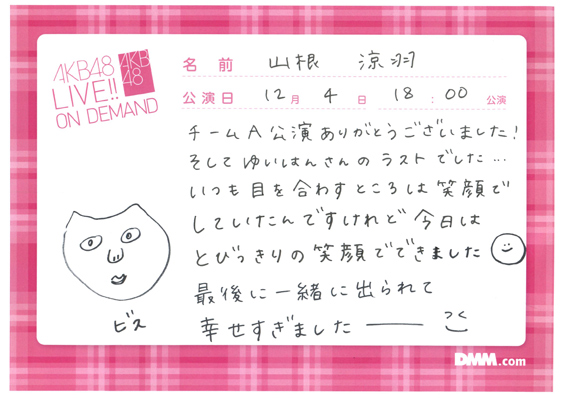 AKB48
LIVE!!
ON DEMAND
AKB
48
名前 山根 涼羽
公演日 12月 4日 18:00公演
チームA公演ありがとうございました!
そしてゆいはんさんのラストでした…
いつも目を合わすところは笑顔で
していたんですけれど今日は
とびっきりの笑顔でできました
最後に一緒に出られて
幸せすぎました――
ビス
DMM.com